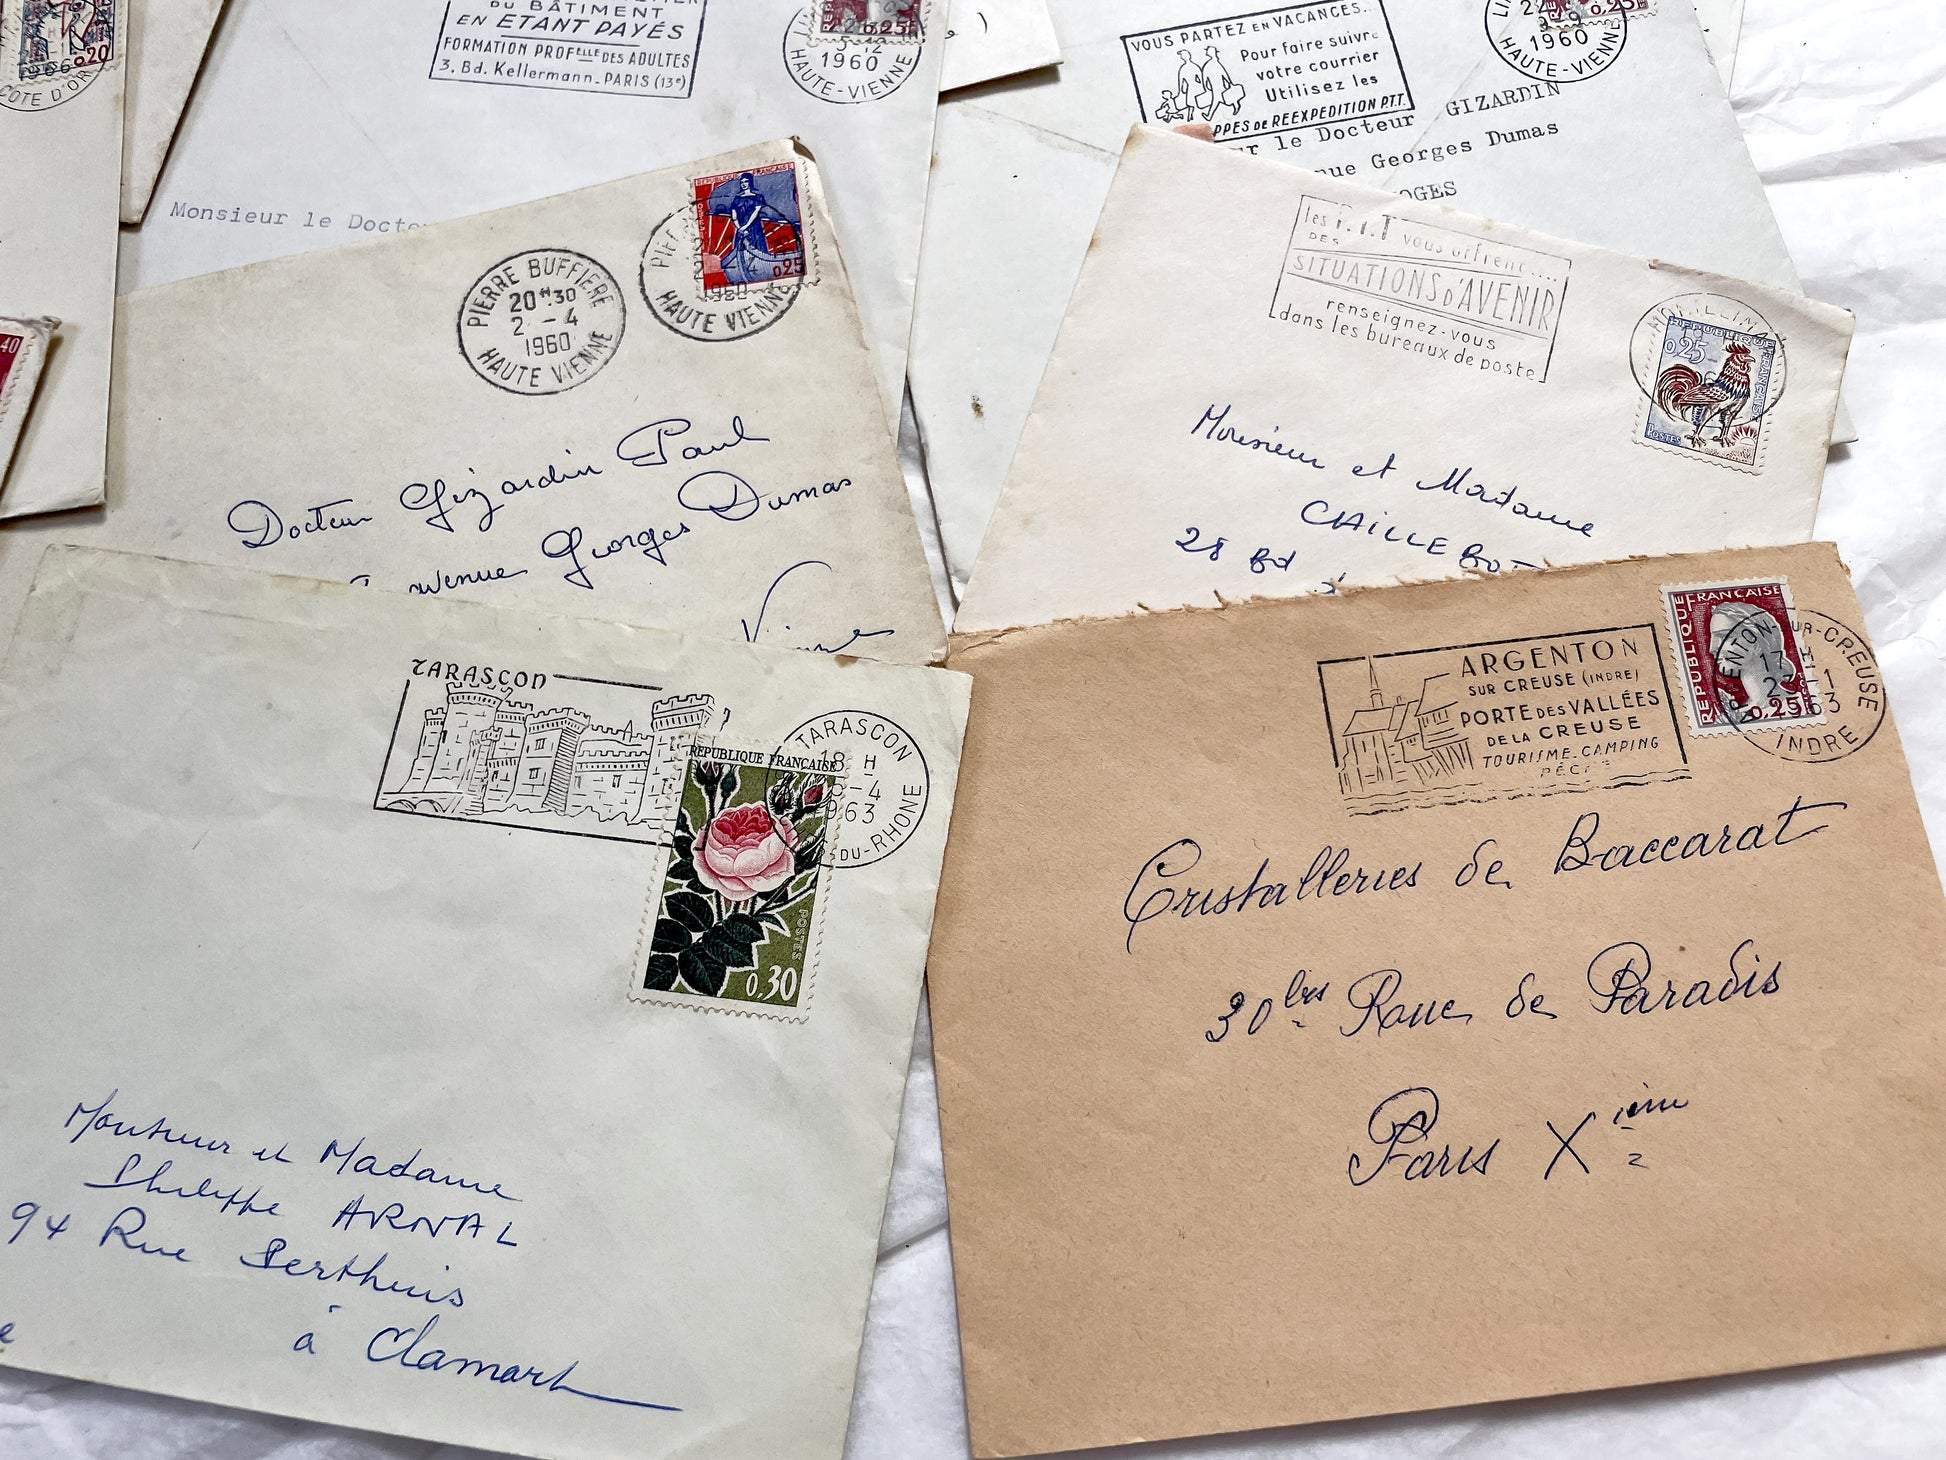 0,20
1966
COTE D'OR
DU BÂTIMENT
EN ETANT PAYÉS
FORMATION PROFELLE DES ADULTES
3, Bd. Kellermann_PARIS (13e)
0,25
1960
HAUTE-VIENNE
Monsieur le Docteu
VOUS PARTEZ EN VACANCES..
Pour faire suivre
votre courrier
Utilisez les
PPES DE REEXPEDITION P.T.T.
0,25
1960
HAUTE-VIENNE
GIZARDIN
ur le Docteur
nue Georges Dumas
OGES
40
PIERRE BUFFIERE
20H.30
2 - 4
1960
HAUTE VIENNE
REPUBLIQUE FRANÇAISE
0,25
1960
HAUTE VIENNE
Docteur Gizardin Paul
avenue Georges Dumas
Vienne
les P.T.T vous offrent....
DES
SITUATIONS D'AVENIR
renseignez-vous
dans les bureaux de poste
REPUBLIQUE FRANÇAISE
0,25
POSTES
Monsieur et Madame
CAILLEBOT
28 Bd
TARASCON
TARASCON
18 H
-4
1963
DU-RHONE
REPUBLIQUE FRANÇAISE
POSTES
0,30
Monsieur et Madame
Philippe ARNAL
94 Rue Berthuis
à Clamart
ARGENTON
SUR CREUSE (INDRE)
PORTE DES VALLÉES
DE LA CREUSE
TOURISME_CAMPING
PÉCHE
REPUBLIQUE FRANÇAISE
0,25
ENTON-SUR-CREUSE
17 H
1963
INDRE
Cristalleries de Baccarat
30 bis Rue de Paradis
Paris Xième